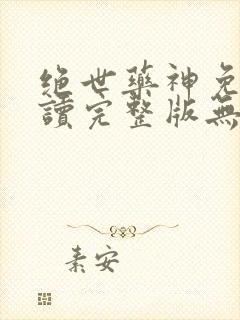 绝世藥神免
讀完整版無
素安